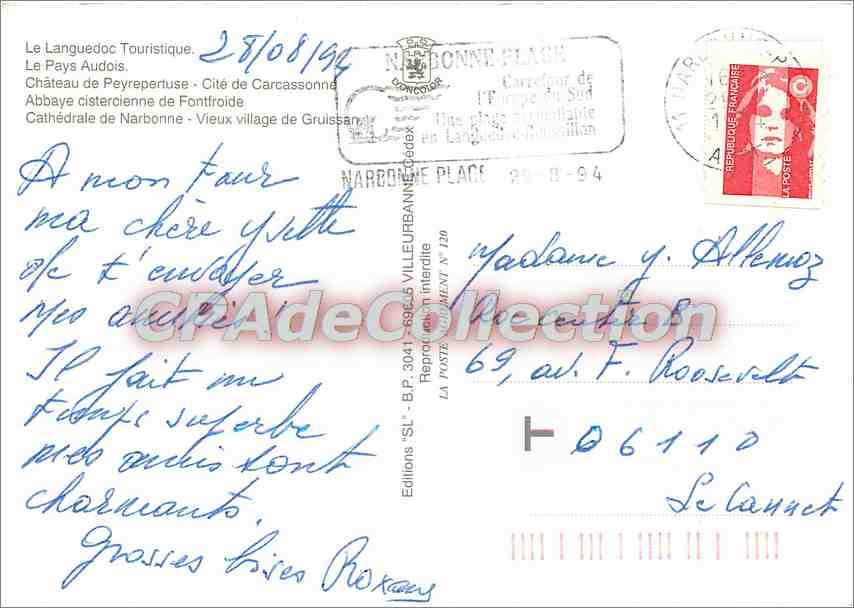 Le Languedoc Touristique.
Le Pays Audois.
Château de Peyrepertuse - Cité de Carcassonne
Abbaye cistercienne de Fontfroide
Cathédrale de Narbonne - Vieux village de Gruissan
28/08/94
A mon tour
ma chère Yvette
de t'envoyer
mes amitiés !
Il fait un
temps superbe
mes amis sont
charmants.
Grosses bises Roxane
Editions "SL" - B.P. 3041 - 69605 VILLEURBANNE Cédex
Reproduction interdite
LA POSTE AGRÉMENT N° 120
LYONCOLOR
NARBONNE-PLAGE
Carrefour de
l'Europe du Sud
Une plage accueillante
en Languedoc-Roussillon
NARBONNE PLAGE 29-8-94
RÉPUBLIQUE FRANÇAISE
LA POSTE
Madame Y.
B
69, av. F. Roosevelt
T
06110
Le Cannet
CPAdeCollection